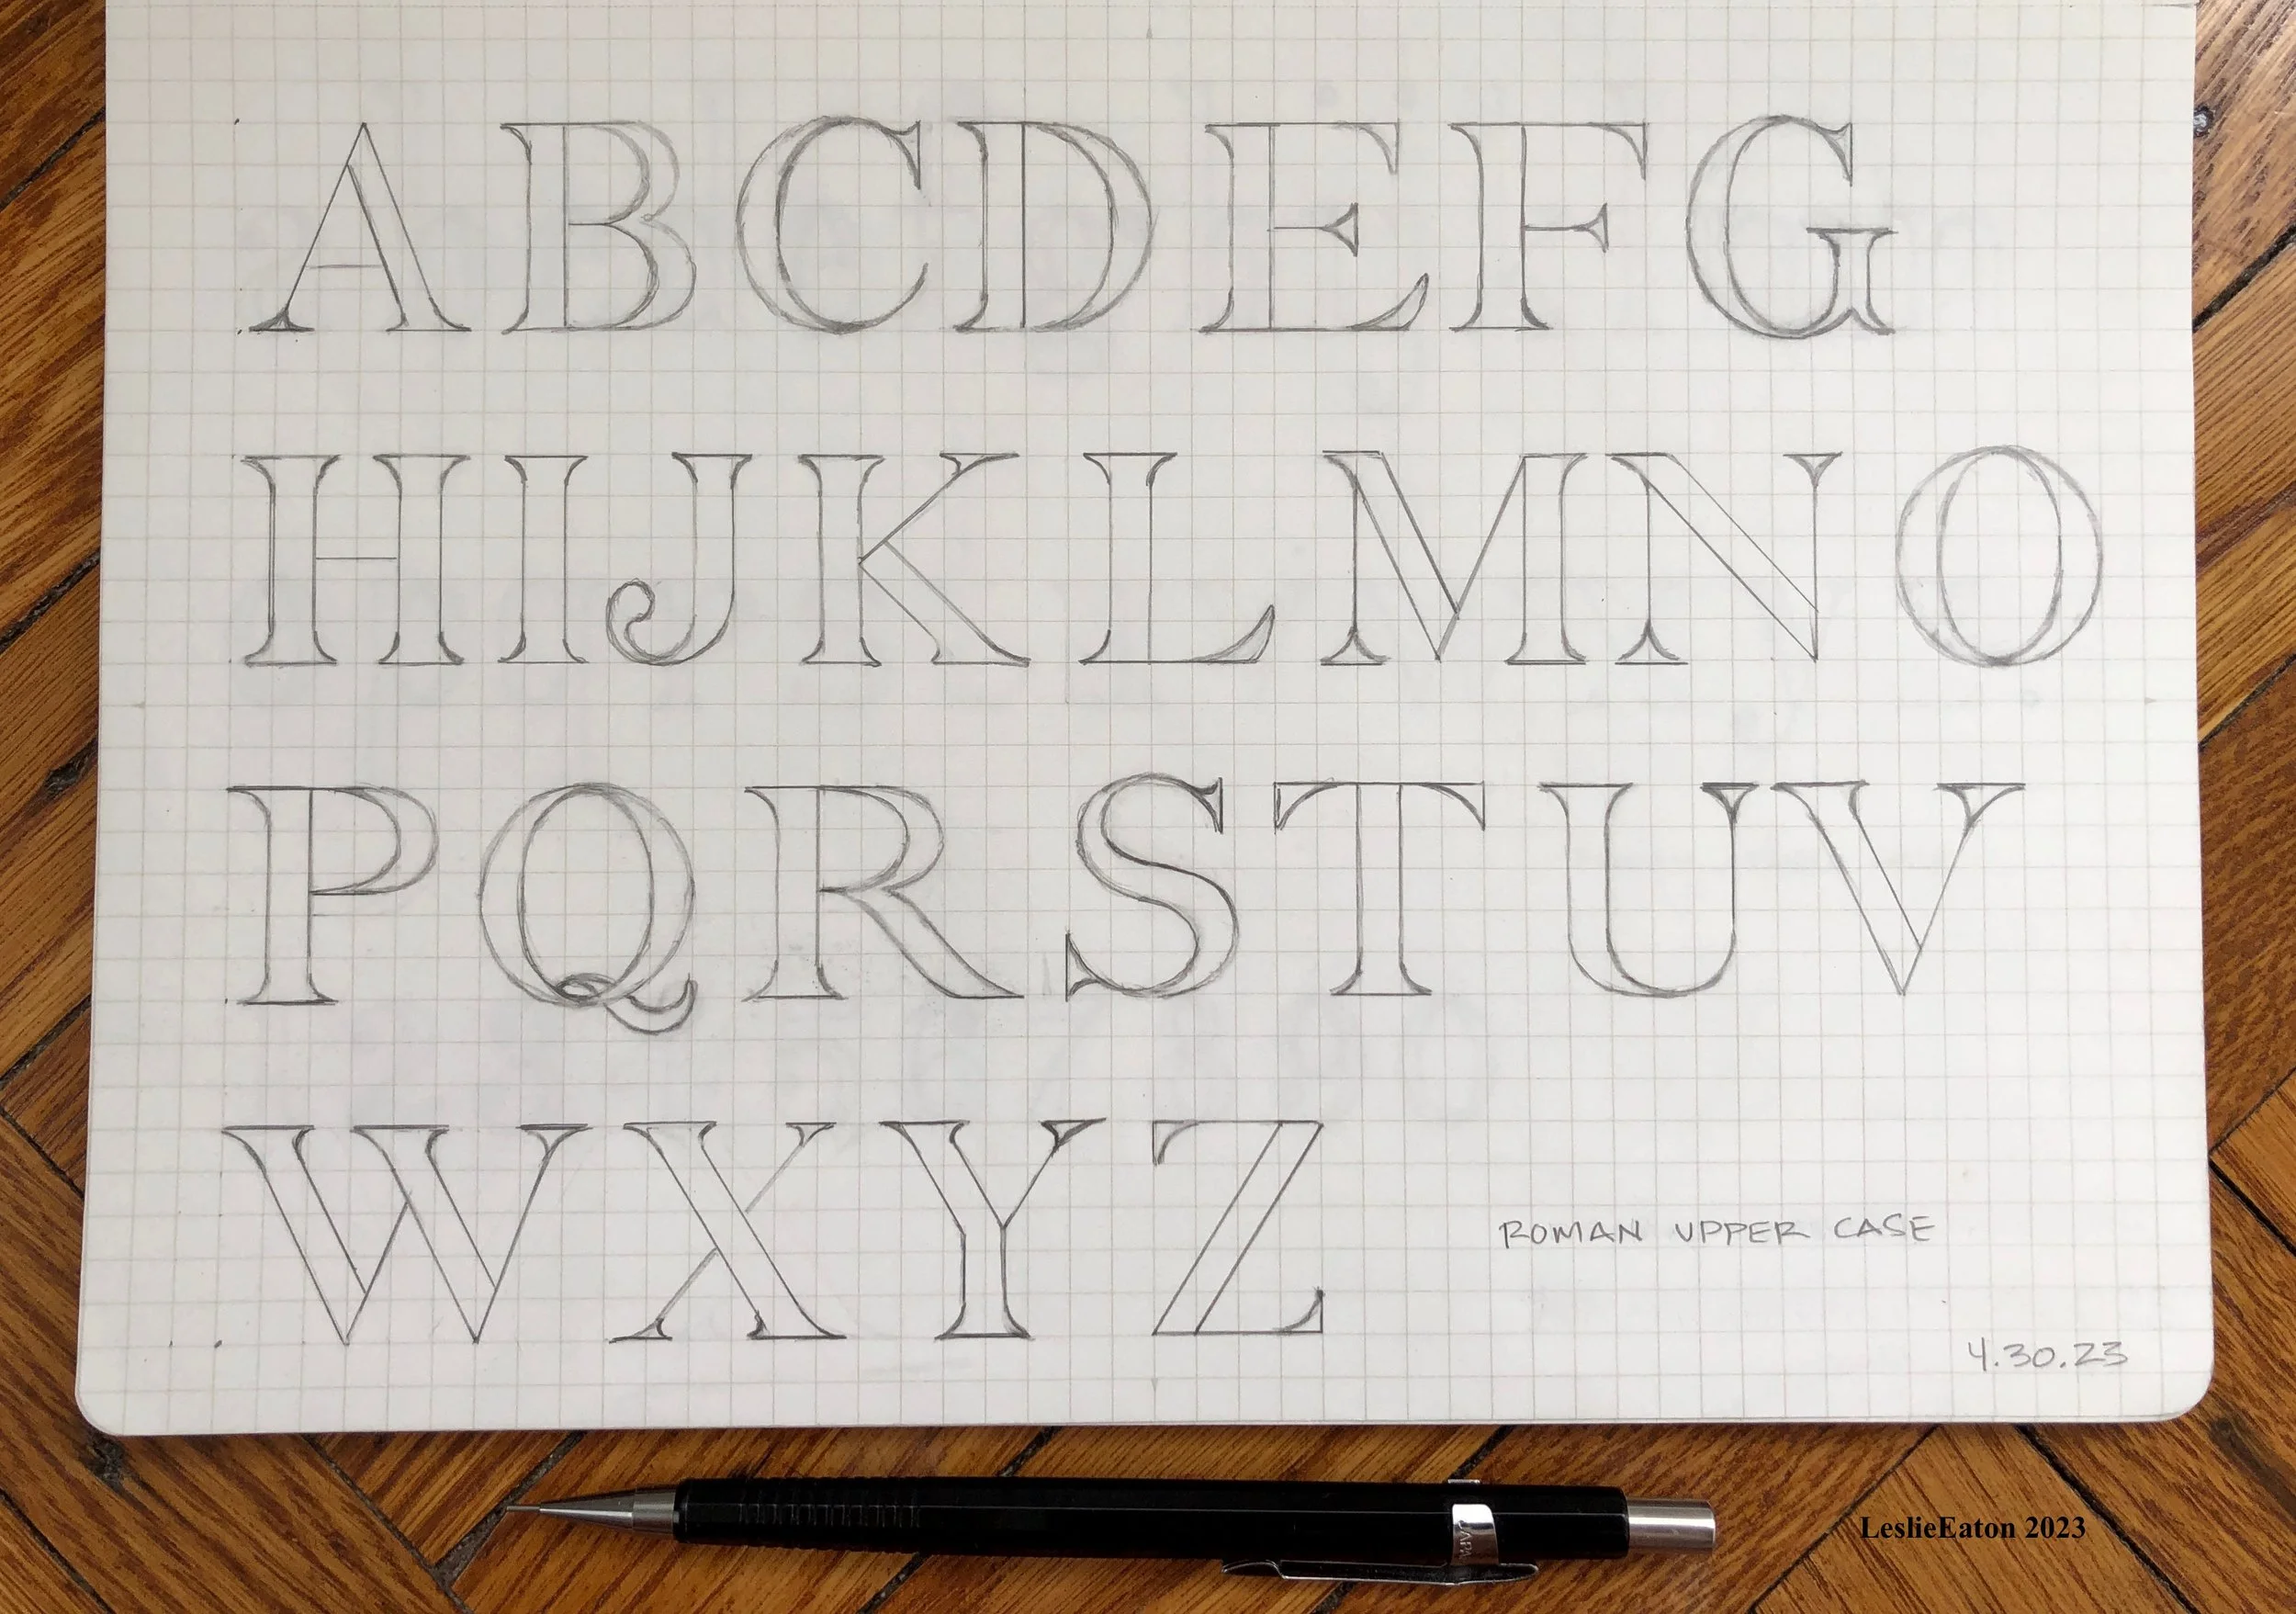 ABCDEFG
HIJKLMNO
PQRSTUV
WXYZ
ROMAN UPPER CASE
4.30.23
JAPAN
LeslieEaton 2023